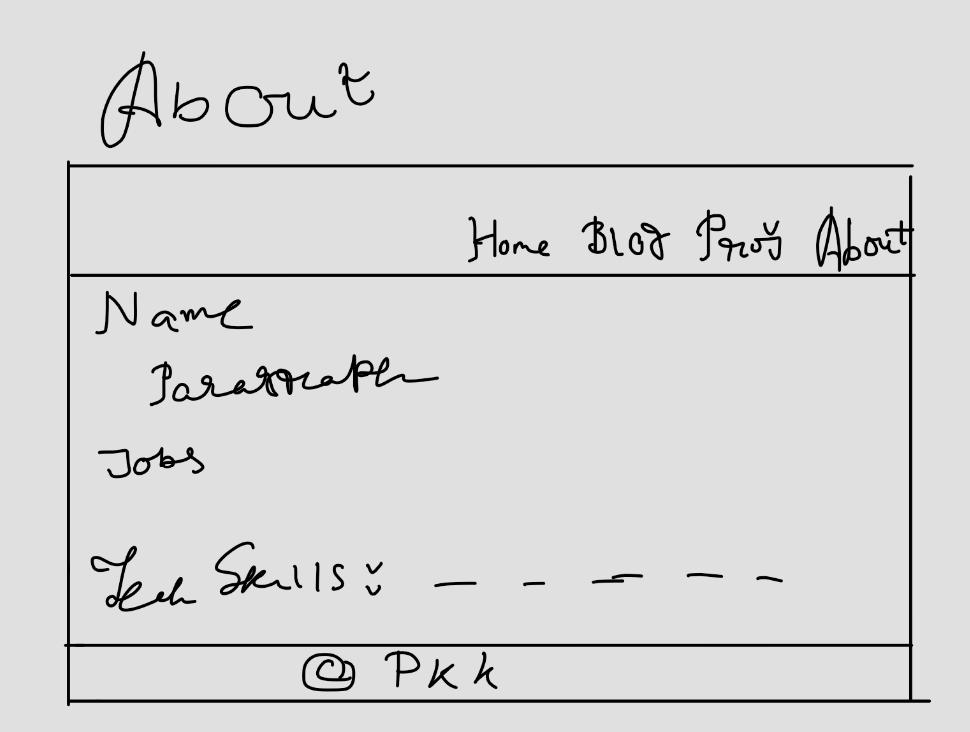 About
Home Blog Proj About
Name
Paragraph
Jobs
Tech Skills: - - - - -
© Pkk